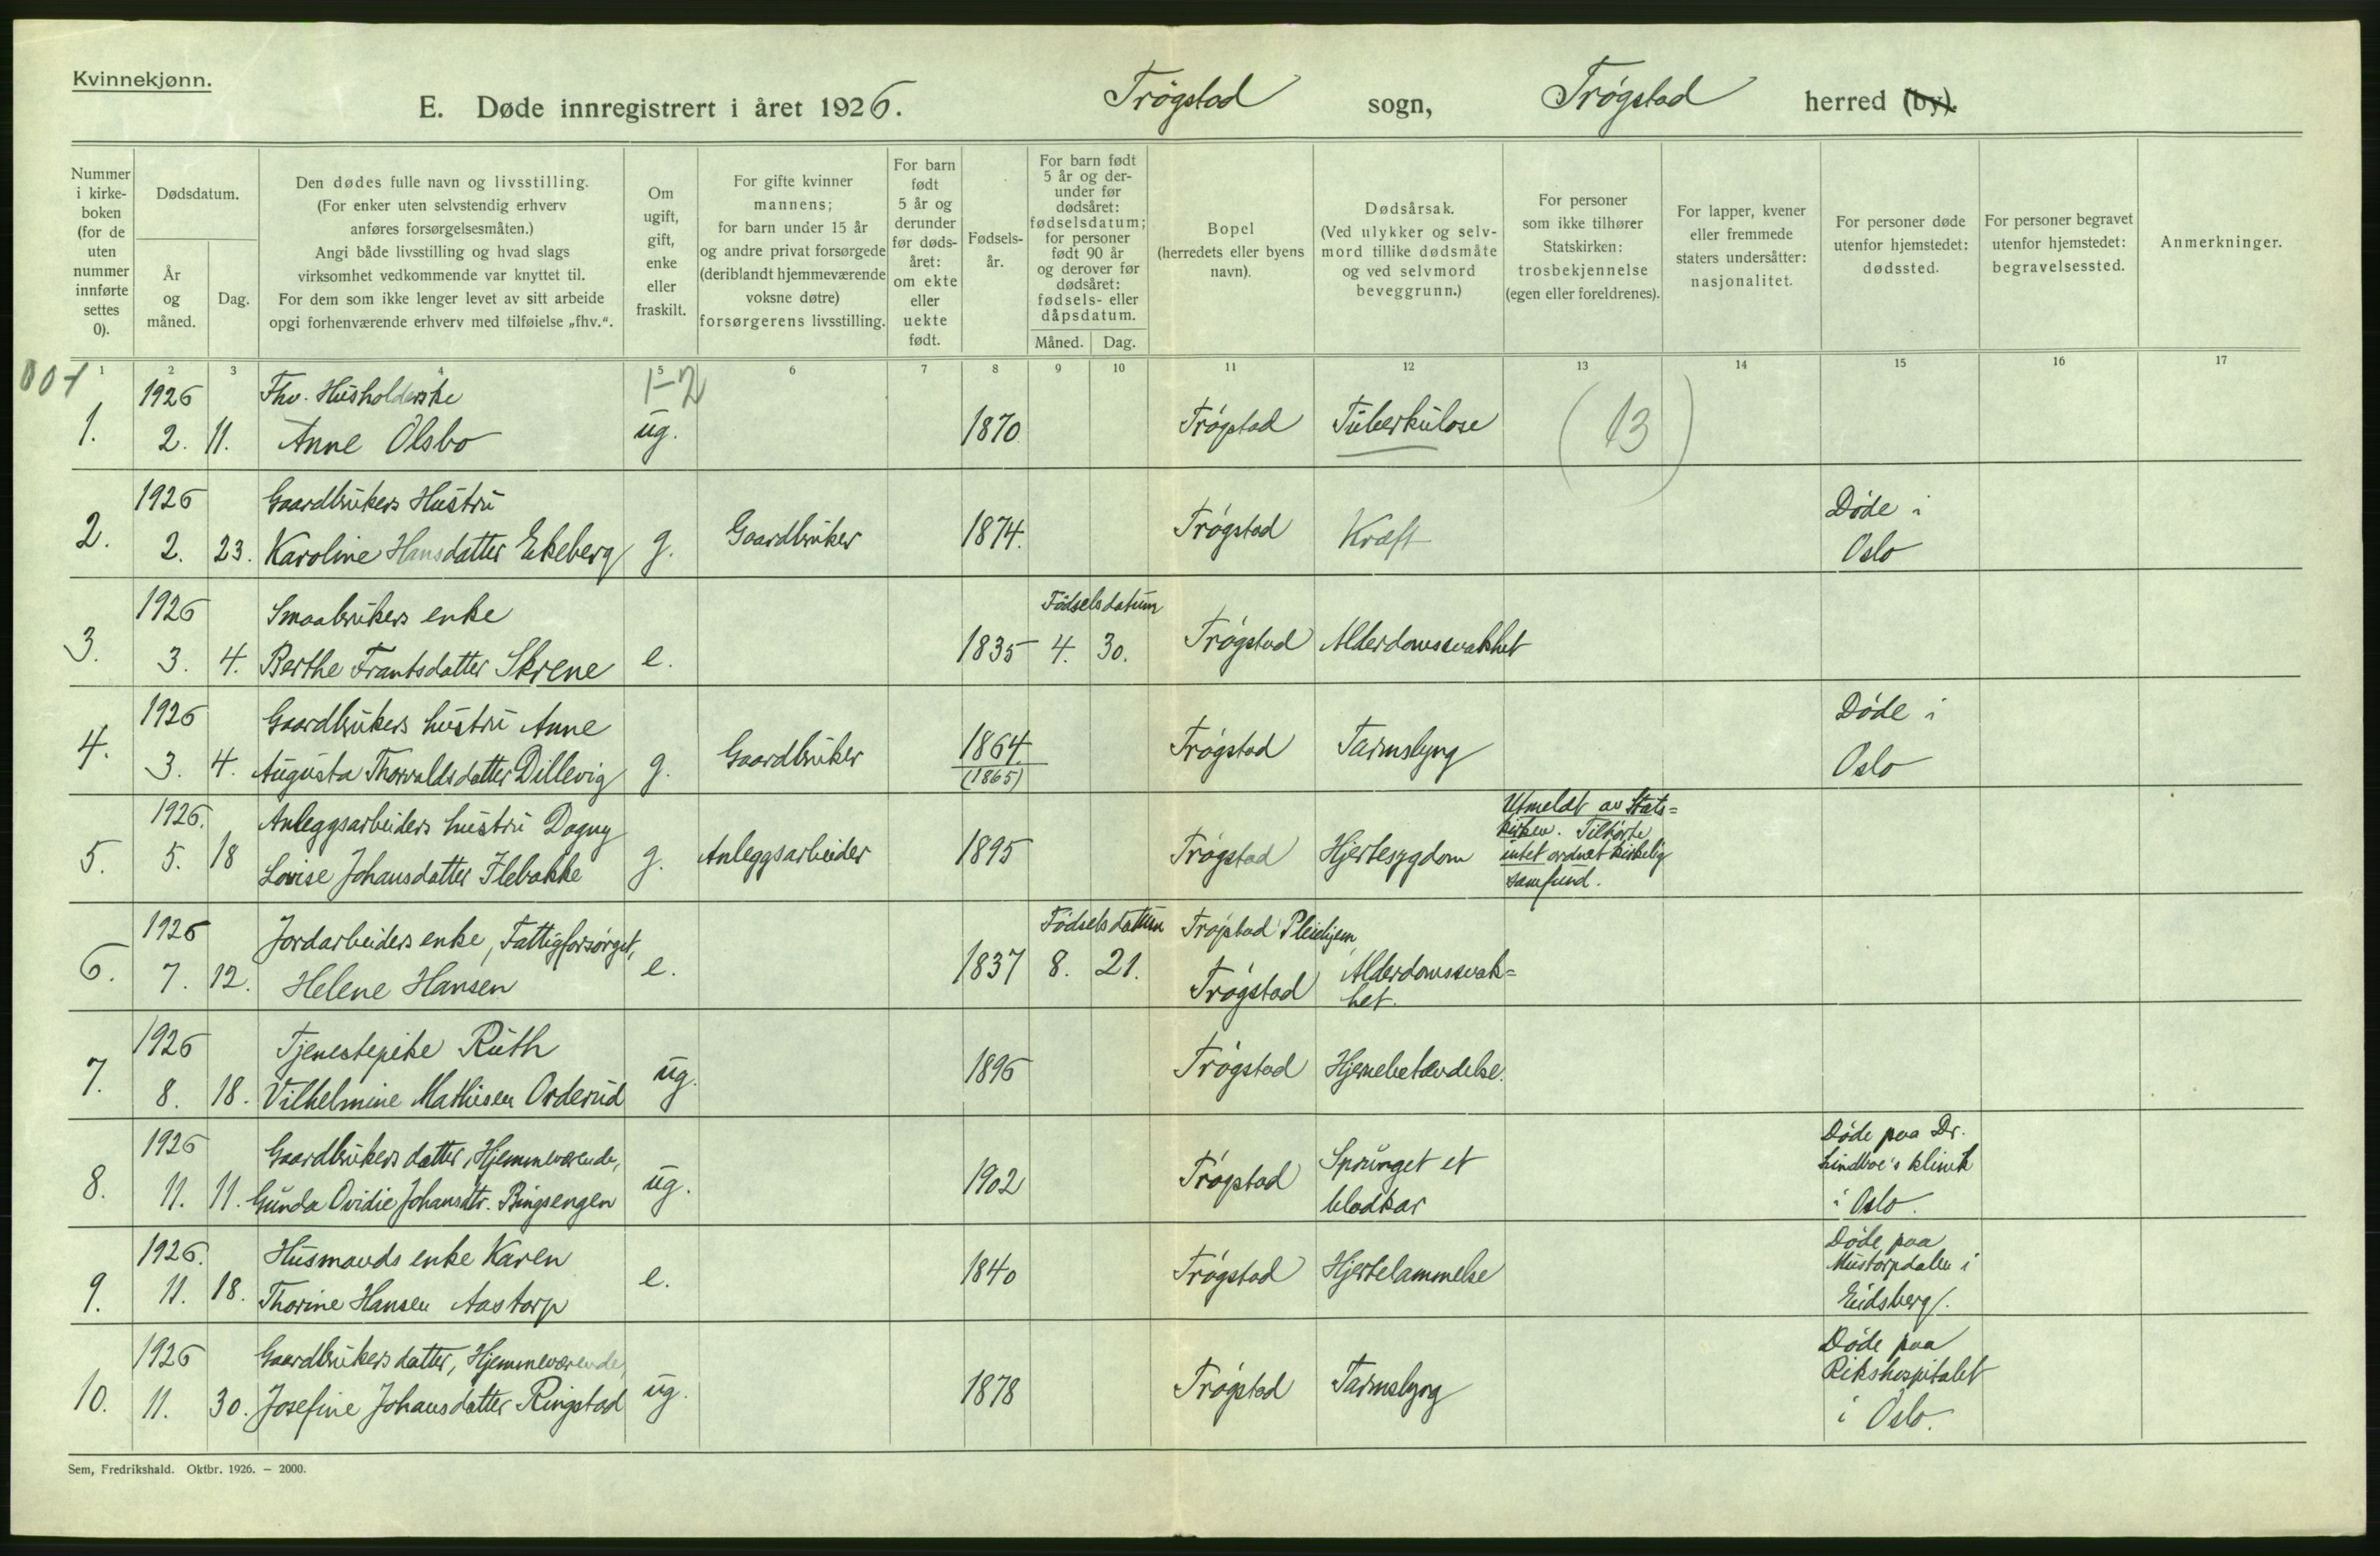 Kvinnekjønn.
E. Døde innregistrert i året 1926. Trøgstad sogn, Trøgstad herred (by).
Nummer i kirkeboken (for de uten nummer innførte settes 0).
Dødsdatum.
År og måned.
Dag.
Den dødes fulle navn og livsstilling.
(For enker uten selvstendig erhverv
anføres forsørgelsesmåten.)
Angi både livsstilling og hvad slags
virksomhet vedkommende var knyttet til.
For dem som ikke lenger levet av sitt arbeide
opgi forhenværende erhverv med tilføielse „fhv.“.
Om
ugift,
gift,
enke
eller
fraskilt.
For gifte kvinner
mannens;
for barn under 15 år
og andre privat forsørgede
(deriblandt hjemmeværende
voksne døtre)
forsørgerens livsstilling.
For barn
født
5 år og
derunder
før døds-
året:
om ekte
eller
uekte
født.
Fødsels-
år.
For barn født
5 år og der-
under før
dødsåret:
fødselsdatum;
for personer
født 90 år
og derover før
dødsåret:
fødsels- eller
dåpsdatum.
Måned. Dag.
Bopel
(herredets eller byens
navn).
Dødsårsak.
(Ved ulykker og selv-
mord tillike dødsmåte
og ved selvmord
beveggrunn.)
For personer
som ikke tilhører
Statskirken:
trosbekjennelse
(egen eller foreldrenes).
For lapper, kvener
eller fremmede
staters undersåtter:
nasjonalitet.
For personer døde
utenfor hjemstedet:
dødssted.
For personer begravet
utenfor hjemstedet:
begravelsessted.
Anmerkninger.
1 2 3 4 5 6 7 8 9 10 11 12 13 14 15 16 17
1926 Fhv. Husholderske 1-2
1. 2. 11. Anne Olsbo ug. 1870 Trøgstad Tuberkulose (13)
1926 Gaardbrukers Hustru Døde i
2. 2. 23. Karoline Hansdatter Ekeberg g. Gaardbruker 1874. Trøgstad Kræft Oslo
1926 Smaabrukers enke Fødselsdatum
3. 3. 4. Berthe Frantsdatter Skrene e. 1835 4. 30. Trøgstad Alderdomssvakhet
1926 Gaardbrukers hustru Anne Døde i
4. 3. 4. Augusta Thorvaldsdatter Dillevig g. Gaardbruker 1864. (1865) Trøgstad Tarmslyng Oslo
1926. Anleggsarbeiders hustru Dagny Utmeldt av Stats=
kirken. Tilhørte
5. 5. 18 Lovise Johansdatter Flebakke g. Anleggsarbeider 1895 Trøgstad Hjertesygdom intet ordnet kirkelig
samfund.
1926 Jordarbeiders enke, Fattigforsørget, Fødselsdatum Trøgstad Pleiehjem,
6. 7. 12. Helene Hansen e. 1837 8. 21. Trøgstad Alderdomssvak=
het.
1926 Tjenestepike Ruth
7. 8. 18. Vilhelmine Mathisen Orderud ug. 1896 Trøgstad Hjernebetændelse.
1926 Gaardbrukers datter, Hjemmeværende, Sprunget et Døde paa Dr.
Lindboe's klinik
8. 11. 11. Gunda Ovidie Johansdtr. Bingsengen ug. 1902 Trøgstad blodkar i Oslo.
1926. Husmands enke Karen Døde paa
Mustorpdalen i
9. 11. 18. Thorine Hansen Aastorp e. 1840 Trøgstad Hjertelammelse Eidsberg.
1926 Gaardbrukers datter, Hjemmeværende, Døde paa
Rikshospitalet
10. 11. 30. Josefine Johansdatter Ringstad ug. 1878 Trøgstad Tarmslyng i Oslo.
Sem, Fredrikshald. Oktbr. 1926. – 2000.